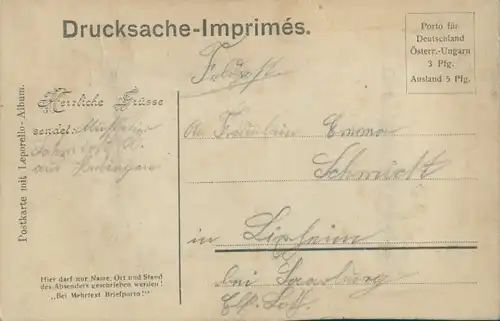 Drucksache-Imprimés.
Porto für
Deutschland
Österr.-Ungarn
3 Pfg.
Ausland 5 Pfg.
Feldpost
Postkarte mit Leporello-Album.
Herzliche Grüsse
sendet:
aus
An Fräulein Emma
Schmidt
in Lixheim
bei Saarburg
Els. Loth.
Hier darf nur Name, Ort und Stand
des Absenders geschrieben werden!
„Bei Mehrtext Briefporto!"